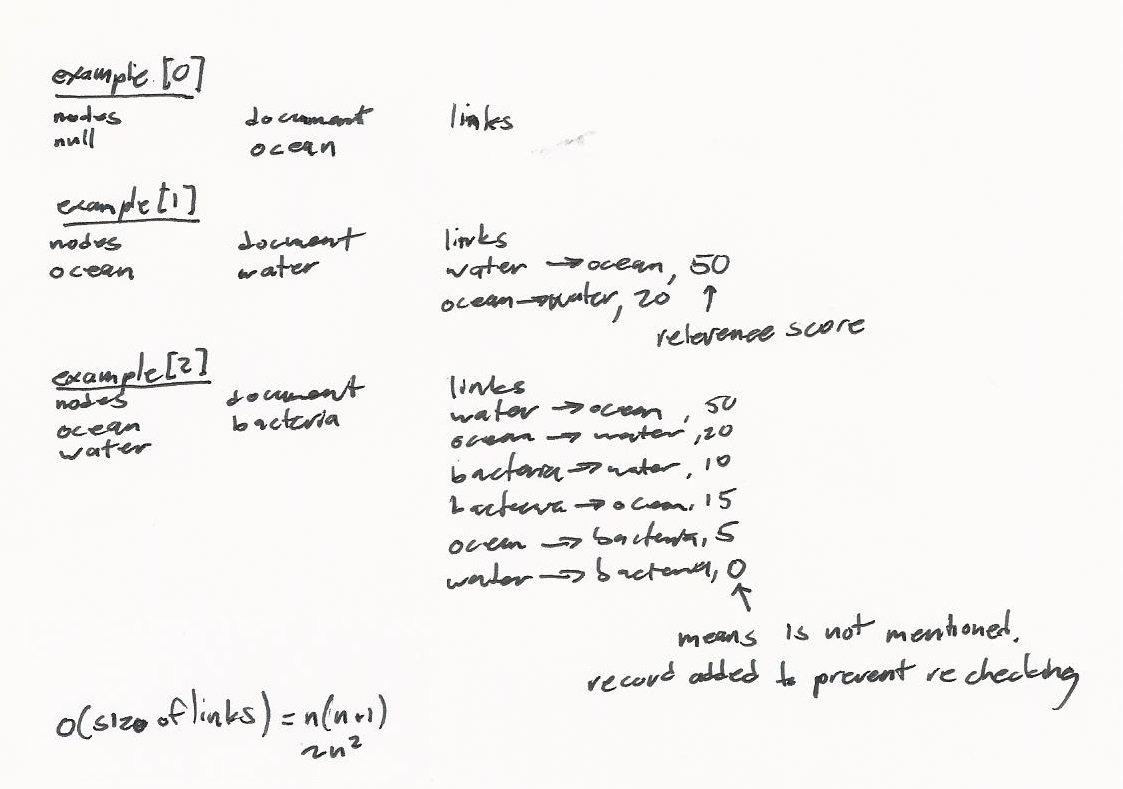 example [0]
nodes document links
null ocean
example [1]
nodes document links
ocean water water → ocean, 50
ocean → water, 20 ↑
relevence score
example [2]
nodes document links
ocean bacteria water → ocean, 50
water ocean → water, 20
bacteria → water, 10
bacteria → ocean, 15
ocean → bacteria, 5
water → bacteria, 0
↑
means is not mentioned.
record added to prevent rechecking
O(size of links) = n(n+1)
~n²